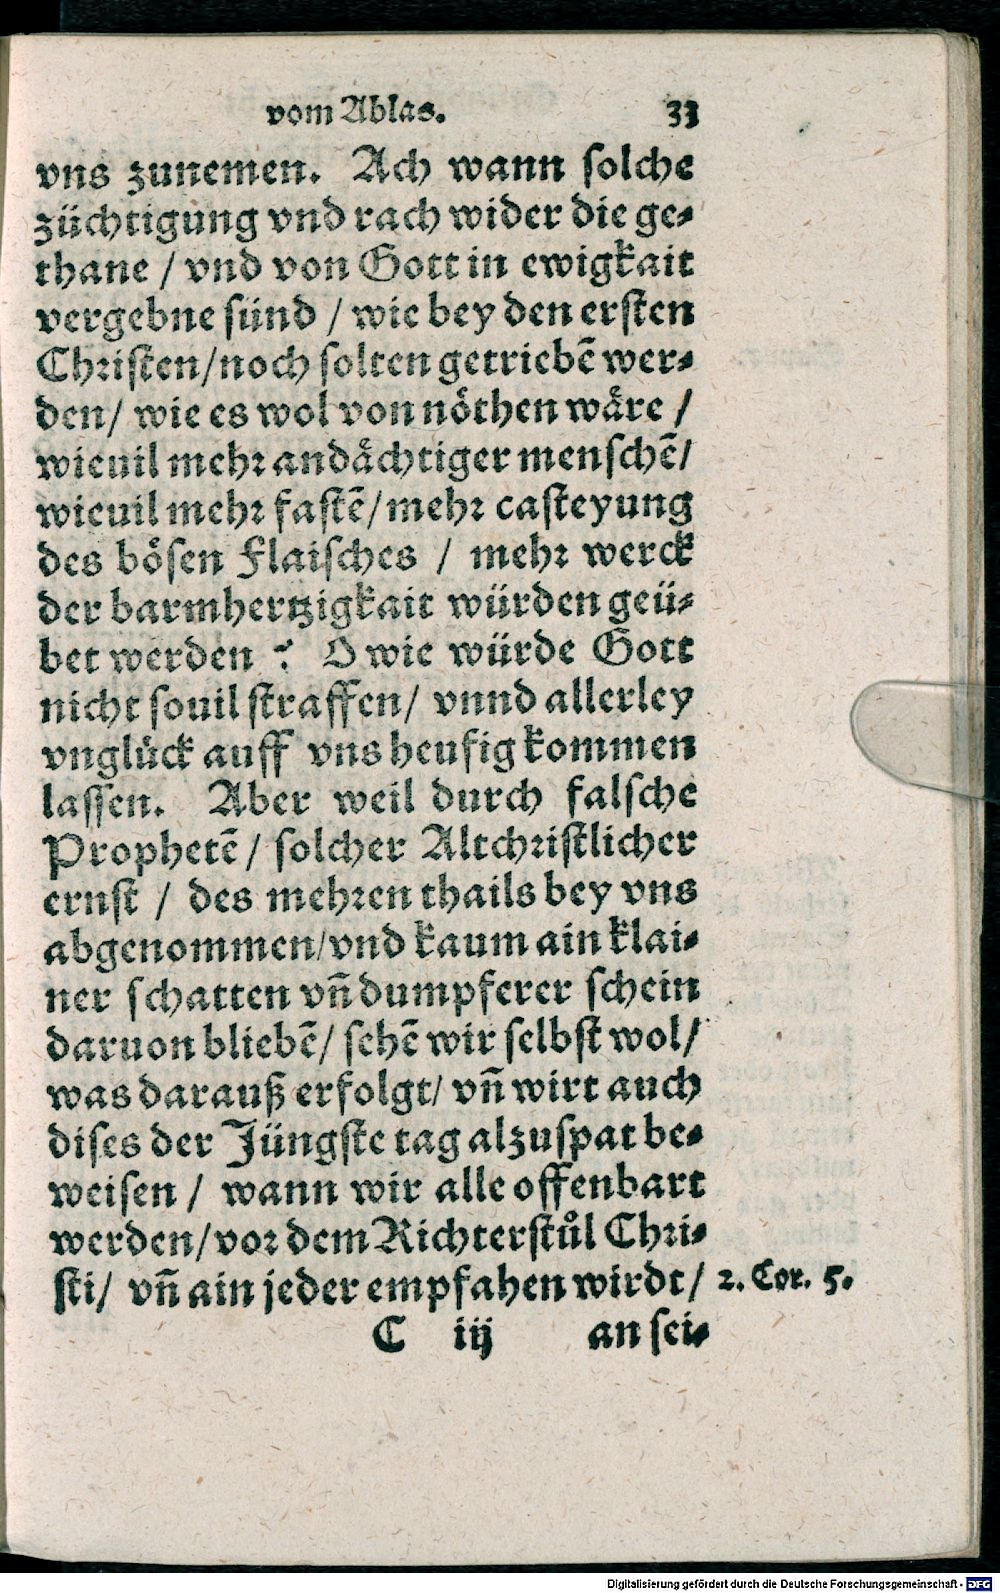 vom Ablas. 33
vns zunemen. Ach wann solche
züchtigung vnd rach wider die ge-
thane / vnd von Gott in ewigkait
vergebne sünd / wie bey den ersten
Christen/noch solten getriebē wer-
den/ wie es wol von nöthen wäre /
wieuil mehr andächtiger menschē/
wieuil mehr fastē/mehr casteyung
des bösen Flaisches / mehr werck
der barmhertzigkait würden geü-
bet werden ? O wie würde Gott
nicht souil straffen/ vnnd allerley
vnglück auff vns heufig kommen
lassen. Aber weil durch falsche
Prophetē/ solcher Altchristlicher
ernst / des mehren thails bey vns
abgenommen/vnd kaum ain klai-
ner schatten vñ dumpferer schein
daruon bliebē/ sehē wir selbst wol/
was darauß erfolgt/ vñ wirt auch
dises der Jüngste tag alzuspat be-
weisen / wann wir alle offenbart
werden/vor dem Richterstůl Chri-
sti/ vñ ain jeder empfahen wirdt/ 2. Cor. 5.
C iij an sei-
Digitalisierung gefördert durch die Deutsche Forschungsgemeinschaft - DFG